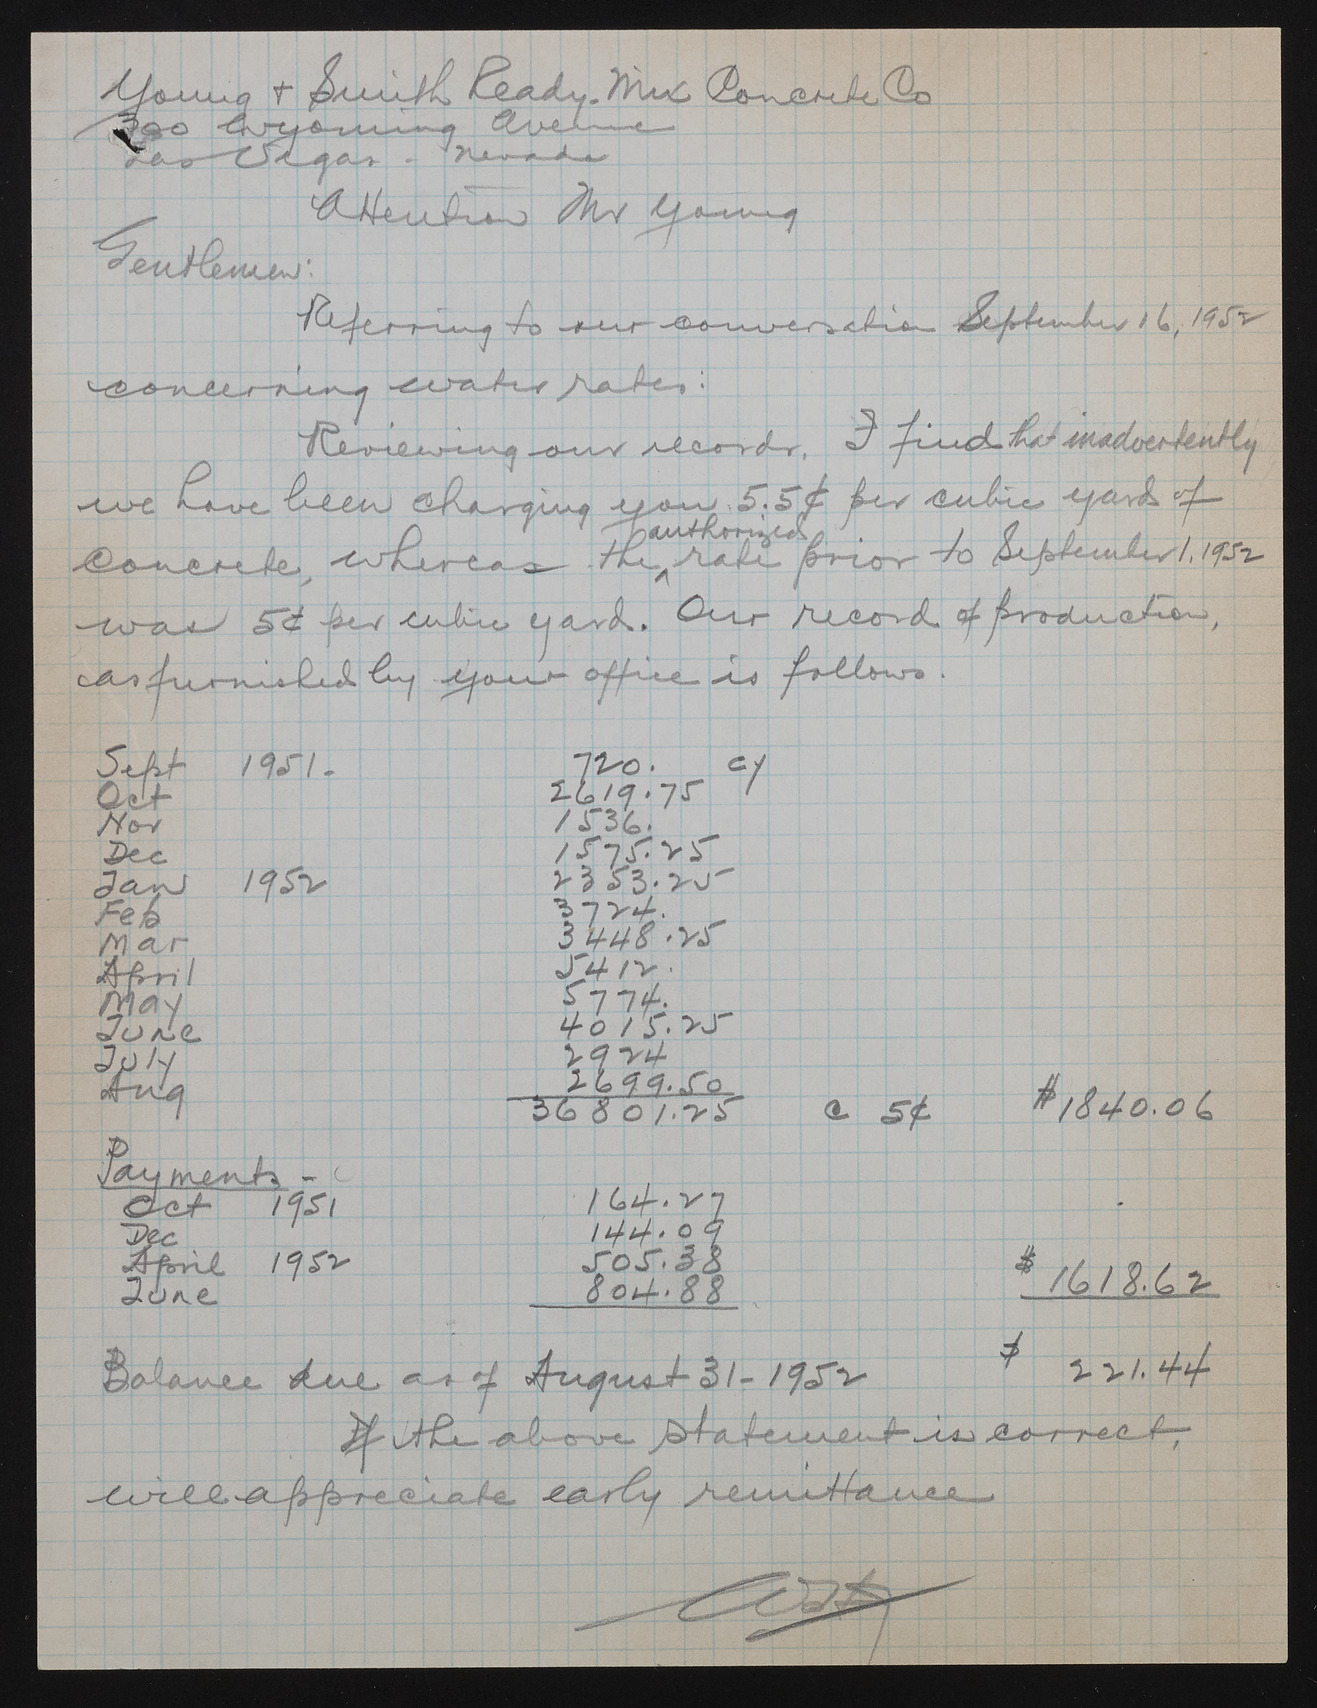 Young + Smith Ready-Mix Concrete Co
300 Wyoming Avenue
Las Vegas - Nevada
Attention Mr Young
Gentlemen:
Referring to our conversation September 16, 1952
concerning water rates:
Reviewing our records, I find that inadvertently
we have been charging you 5.5¢ per cubic yard of
authorized
concrete, whereas the ^ rate prior to September 1, 1952
was 5¢ per cubic yard. Our record of production,
as furnished by your office is follows.
Sept 1951- 720. cy
Oct 2619.75
Nov 1536.
Dec 1575.25
Jan 1952 2353.25
Feb 3724.
Mar 3448.25
April 5412.
May 5774.
June 4015.25
July 2924
Aug 2699.50
36801.25 @ 5¢ $1840.06
Payments -
Oct 1951 164.27
Dec 144.09
April 1952 505.38
June 804.88 $1618.62
Balance due as of August 31-1952 $ 221.44
If the above statement is correct,
will appreciate early remittance